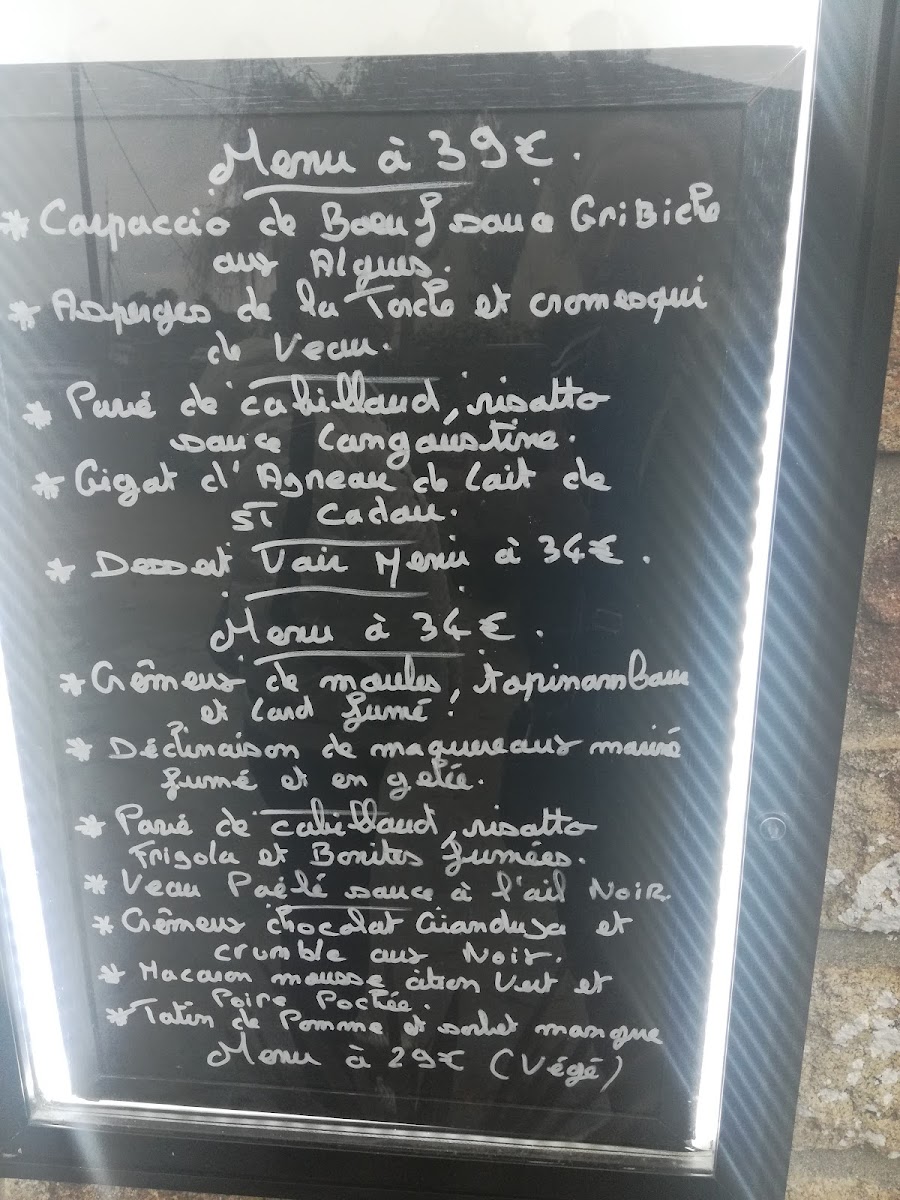 Menu à 39€.
* Carpaccio de Boeuf sauce GRiBiche
aux Algues.
* Asperges de la Torche et cromesqui
de Veau.
* Pavé de cabillaud, risotto
sauce Langoustine.
* Gigot d'Agneau de lait de
ST Cadou.
* Dessert Voir Menu à 34€.
Menu à 34€.
* Crêmeux de moules, topinambour
et lard fumé.
* Déclinaison de maquereaux mariné
fumé et en gelée.
* Pavé de cabillaud, risotto
Frigola et Bonites fumées.
* Veau Poêlé sauce à l'ail NoiR.
* Crêmeux chocolat Gianduja et
crumble aux Noix.
* Macaron mousse citron Vert et
Poire Pochée.
* Tatin de Pomme et sorbet mangue
Menu à 29€ (Végé)